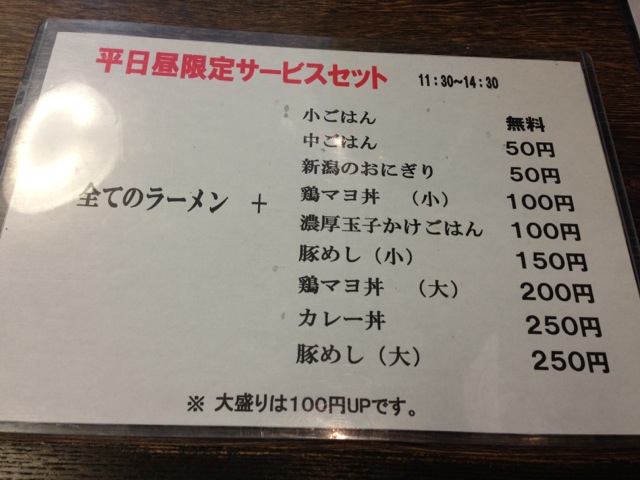 平日昼限定サービスセット 11:30~14:30
小ごはん 無料
中ごはん 50円
新潟のおにぎり 50円
全てのラーメン + 鶏マヨ丼 (小) 100円
濃厚玉子かけごはん 100円
豚めし(小) 150円
鶏マヨ丼 (大) 200円
カレー丼 250円
豚めし(大) 250円
※ 大盛りは100円UPです。